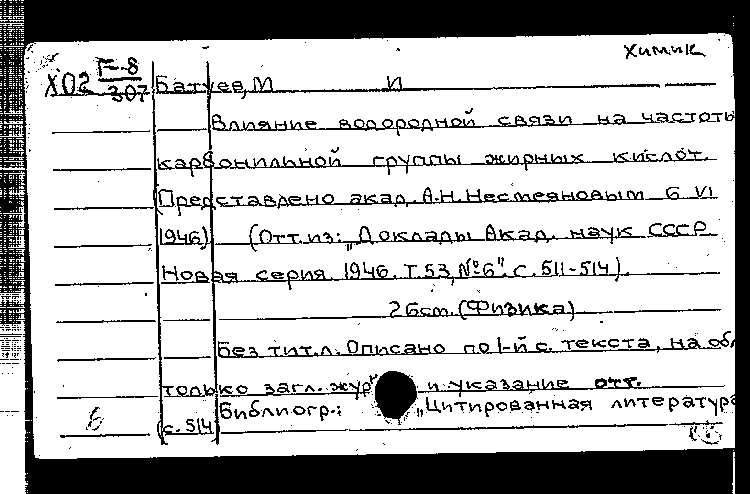 химик
Х02 F-8
307 Батуев, М И
Влияние водородной связи на частоты
карбонильной группы жирных кислот.
(Представлено акад. А.Н. Несмеяновым 6 VI
1946) (Отт. из: „Доклады Акад. наук СССР
Новая серия 1946. Т.53, №6". с. 511-514).
(Физика)
Без тит.л. Описано по 1-й с. текста, на обл
только загл. жур и указание отт.
Библиогр.: „Цитированная литература
б (с. 514)